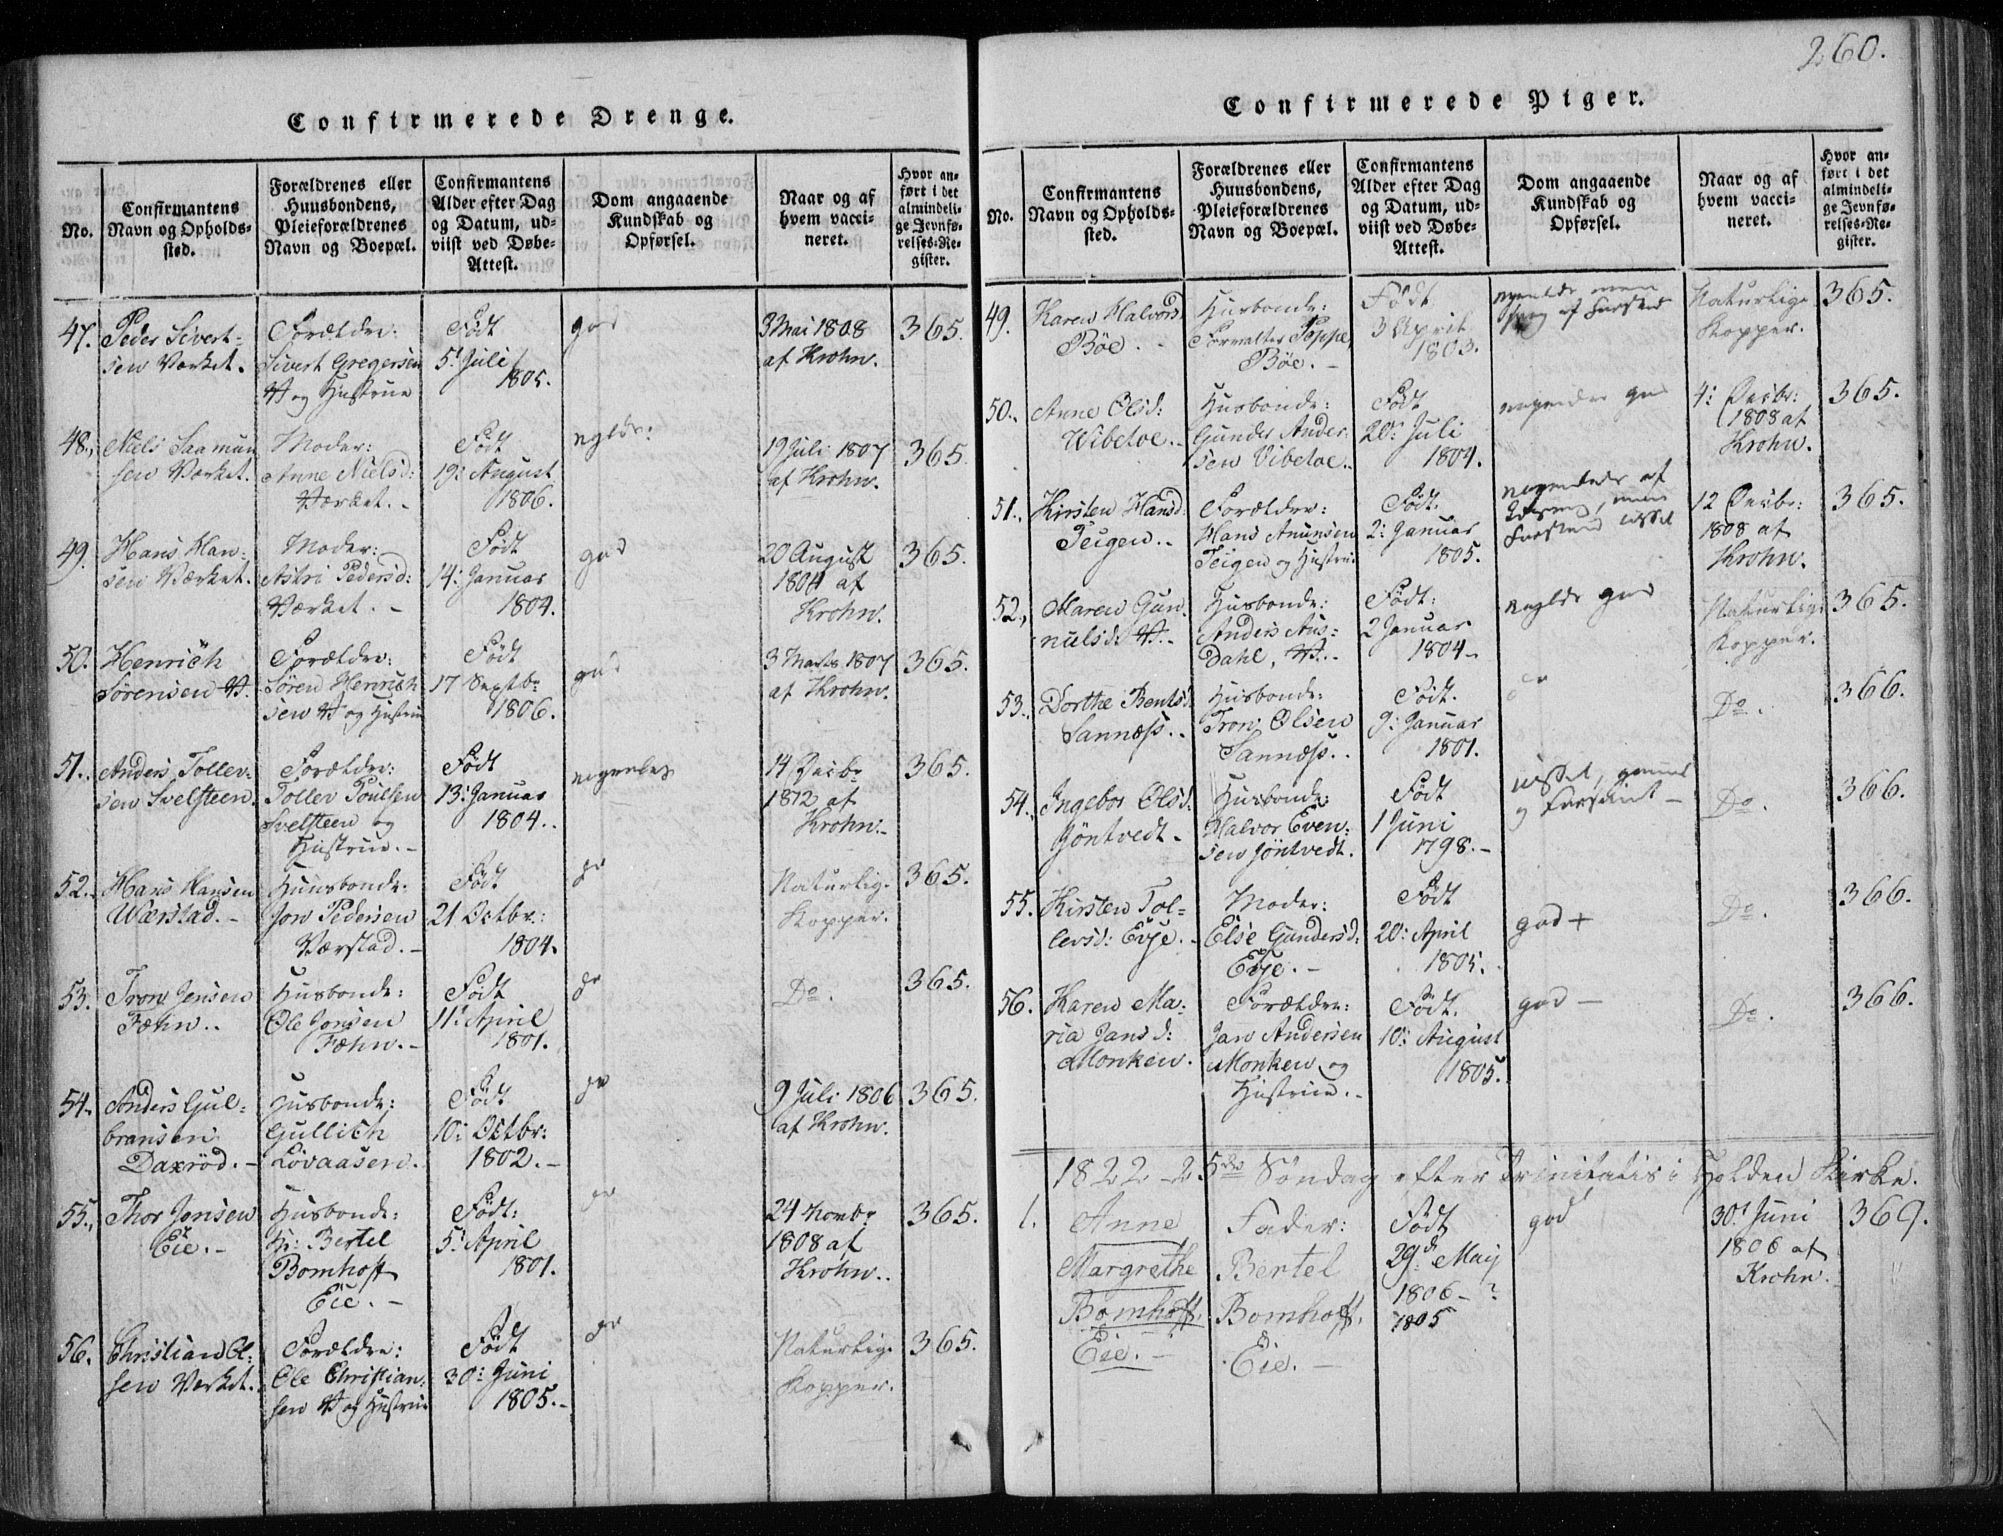 260.
Confirmerede Drenge.
No.
Confirmantens
Navn og Opholds-
sted.
Forældrenes eller
Huusbondens,
Pleieforældrenes
Navn og Boepæl.
Confirmantens
Alder efter Dag
og Datum, ud-
viist ved Døbe-
Attest.
Dom angaaende
Kundskab og
Opførsel.
Naar og af
hvem vacci-
neret.
Hvor an-
ført i det
almindeli-
ge Jevnfø-
relses-Re-
gister.
47.
Peder Sivert-
sen Værket.
Forældre:
Sivert Gregersen
V. og Hustrue
Født
5t Juli
1805.
god
3 Mai 1808
af Krohn.
365.
48.
Niels Saamun
sen Værket.
Moder:
Anne Nielsd:
Værket.-
Født
19: August
1806.
19 Juli 1807
af Krohn.
365.
49.
Hans Han-
sen Værket.
Moder:
Astri Pedersd:
Værket.-
Født
14: Januar
1804.
god
20 August
1804 af
Krohn.
365.
50.
Henrich
Sørensen V.
Forældre:
Søren Henrich
sen V og Hustrue
Født
17 Septbr
1806.
god
3 Marts 1807
af Krohn.
365.
51.
Anders Toller-
sen Svelsteen.
Forældre:
Toller Poulsen
Svelsteen og
Hustrue.-
Født
13: Januar
1804.
14 Decbr
1812 af
Krohn.-
365.
52.
Hans Hansen
Wærstad.-
Huusbonde:
Jon Pedersen
Værstad.-
Født
21 Octbr:
1804.
Naturlig.
Kopper.
365.
53.
Tron Jensen
Fæhn.
Husbonde:
Ole Jonsen
Fæhn.-
Født
11t April
1801.
Do.
365.
54.
Anders Gul-
bransen
Daxrød.-
Husbonde:
Gullich
Lövaasen.
Født
10: Octbr:
1802.-
9 Juli 1806
af Krohn.
365.
55.
Thor Jensen
Eie.-
Husbonde:
Hr: Bertel
Bomhoff
Eie.-
Født:
5t April
1801.
24 Novbr
1808 af
Krohn.
365.
56.
Christian Ol-
sen Værket.
Forældre:
Ole Christian-
sen V og Hustrue
Født
30: Juni
1805.-
Naturlig.
Kopper.
365.
Confirmerede Piger.
No.
Confirmantens
Navn og Opholds-
sted.
Forældrenes eller
Huusbondens,
Pleieforældrenes
Navn og Boepæl.
Confirmantens
Alder efter Dag
og Datum, ud-
viist ved Døbe-
Attest.
Dom angaaende
Kundskab og
Opførsel.
Naar og af
hvem vacci-
neret.
Hvor an-
ført i det
almindeli-
ge Jevnfø-
relses-Re-
gister.
49.
Karen Halvors
Bøe.
Husbonde:
Forvalter Poppe,
Bøe.-
Født
3 April
1803.
Naturlige
Kopper.
365.
50.
Anne Olsd:
Wibetoe.
Husbonde:
Gunder Ander-
sen Vibetoe.
Født
20: Juli
1804.
god
4: Decbr:
1808 af
Krohn.
365.
51.
Kirsten Hansd
Teigen.
Forældre:
Hans Anunsen
Teigen og Hustrue
Født.
2: Januar
1805.
12 Decbr:
1808 af
Krohn.
365.
52.
Maren Gun-
nulsd: V.-
Husbonde:
Anders Aus-
Dahl, V.-
Født:
2 Januar
1804-
god
Naturlig.
Kopper.
365.
53.
Dorthe Bentsd.
Sannæss.
Husbonde:
Tron Olsen
Sannæss.
Født.
9: Januar
1801.
Do.
366.
54.
Ingebor Olsd.
Jöntvedt-
Husbonde:
Halvor Even-
sen Jöntvedt.
Født
1 Juni
1798.-
Do.
366.
55.
Kirsten Tol-
levsd: Evje.
Moder:
Else Gundersd:
Evje.-
Født
20: April
1805.
god +
Do.
366.
56.
Karen Ma-
ria Jansd:
Monken.
Forældre:
Jan Andersen
Monken og
Hustrue.-
Født.
10: August
1805.
god -
Do.
366.
1822 - 25de Søndag efter Trinitatis i Holden Kirke.
1.
Anne
Margrethe
Bomhoff.
Eie.-
Fader:
Bertel
Bomhoff.
Eie.-
Født
29d: Maij
1806-?
1805
god
30t Juni
1806 af
Krohn.
369.